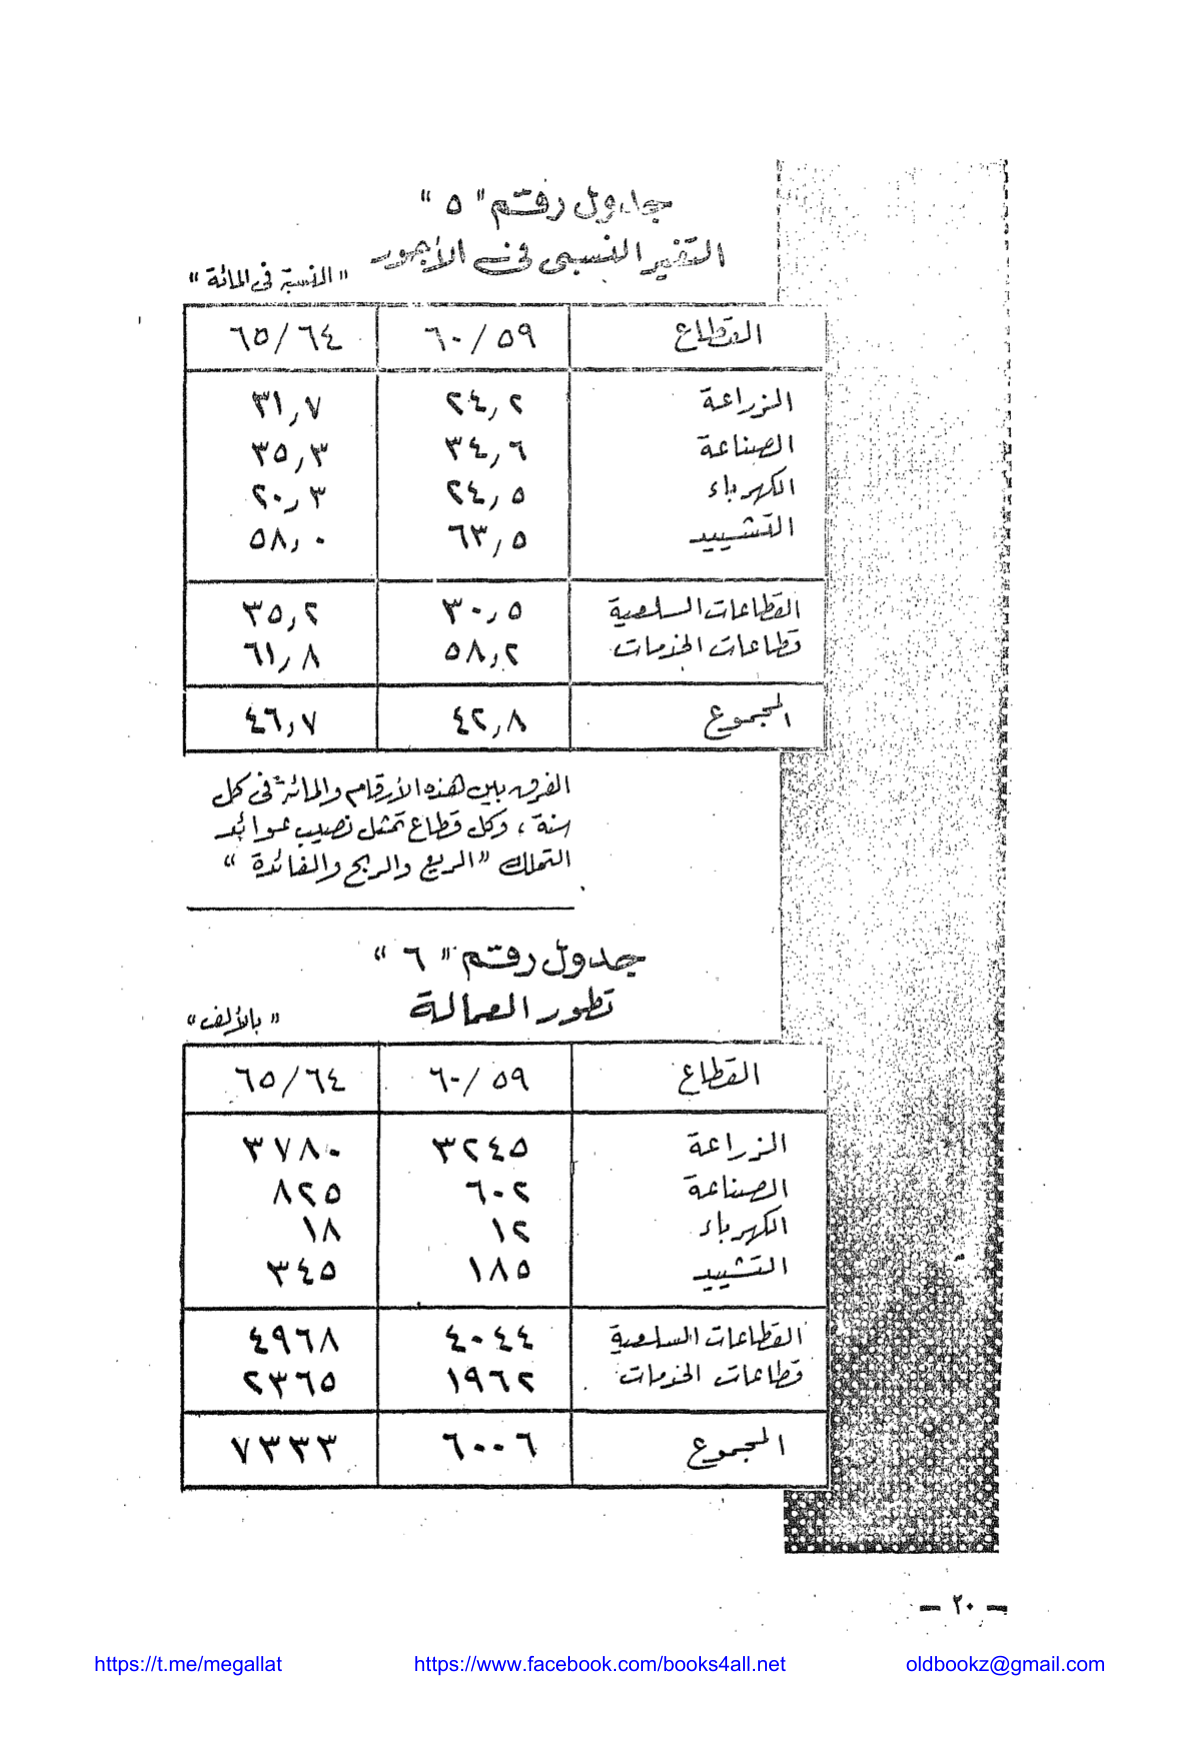 جدول رقم "٥"
التغير النسبى فى الأجور
"النسبة فى المائة"
القطاع ٦٠/٥٩ ٦٥/٦٤
الزراعة ٢٤,٢ ٣١,٧
الصناعة ٣٤,٦ ٣٥,٣
الكهرباء ٢٤,٥ ٢٠,٣
التشييد ٦٣,٥ ٥٨,٠
القطاعات السلعية ٣٠,٥ ٣٥,٢
قطاعات الخدمات ٥٨,٢ ٦١,٨
المجموع ٤٢,٨ ٤٦,٧
الفرق بين هذه الأرقام والمائة فى كل
سنة، وكل قطاع تمثل نصيب عوائد
التملك "الريع والربح والفائدة"
جدول رقم "٦"
تطور العمالة
"بالألف"
القطاع ٦٠/٥٩ ٦٥/٦٤
الزراعة ٣٢٤٥ ٣٧٨٠
الصناعة ٦٠٢ ٨٢٥
الكهرباء ١٢ ١٨
التشييد ١٨٥ ٣٤٥
القطاعات السلعية ٤٠٤٤ ٤٩٦٨
قطاعات الخدمات ١٩٦٢ ٢٣٦٥
المجموع ٦٠٠٦ ٧٣٣٣
— ٢٠ —
https://t.me/megallat https://www.facebook.com/books4all.net oldbookz@gmail.com